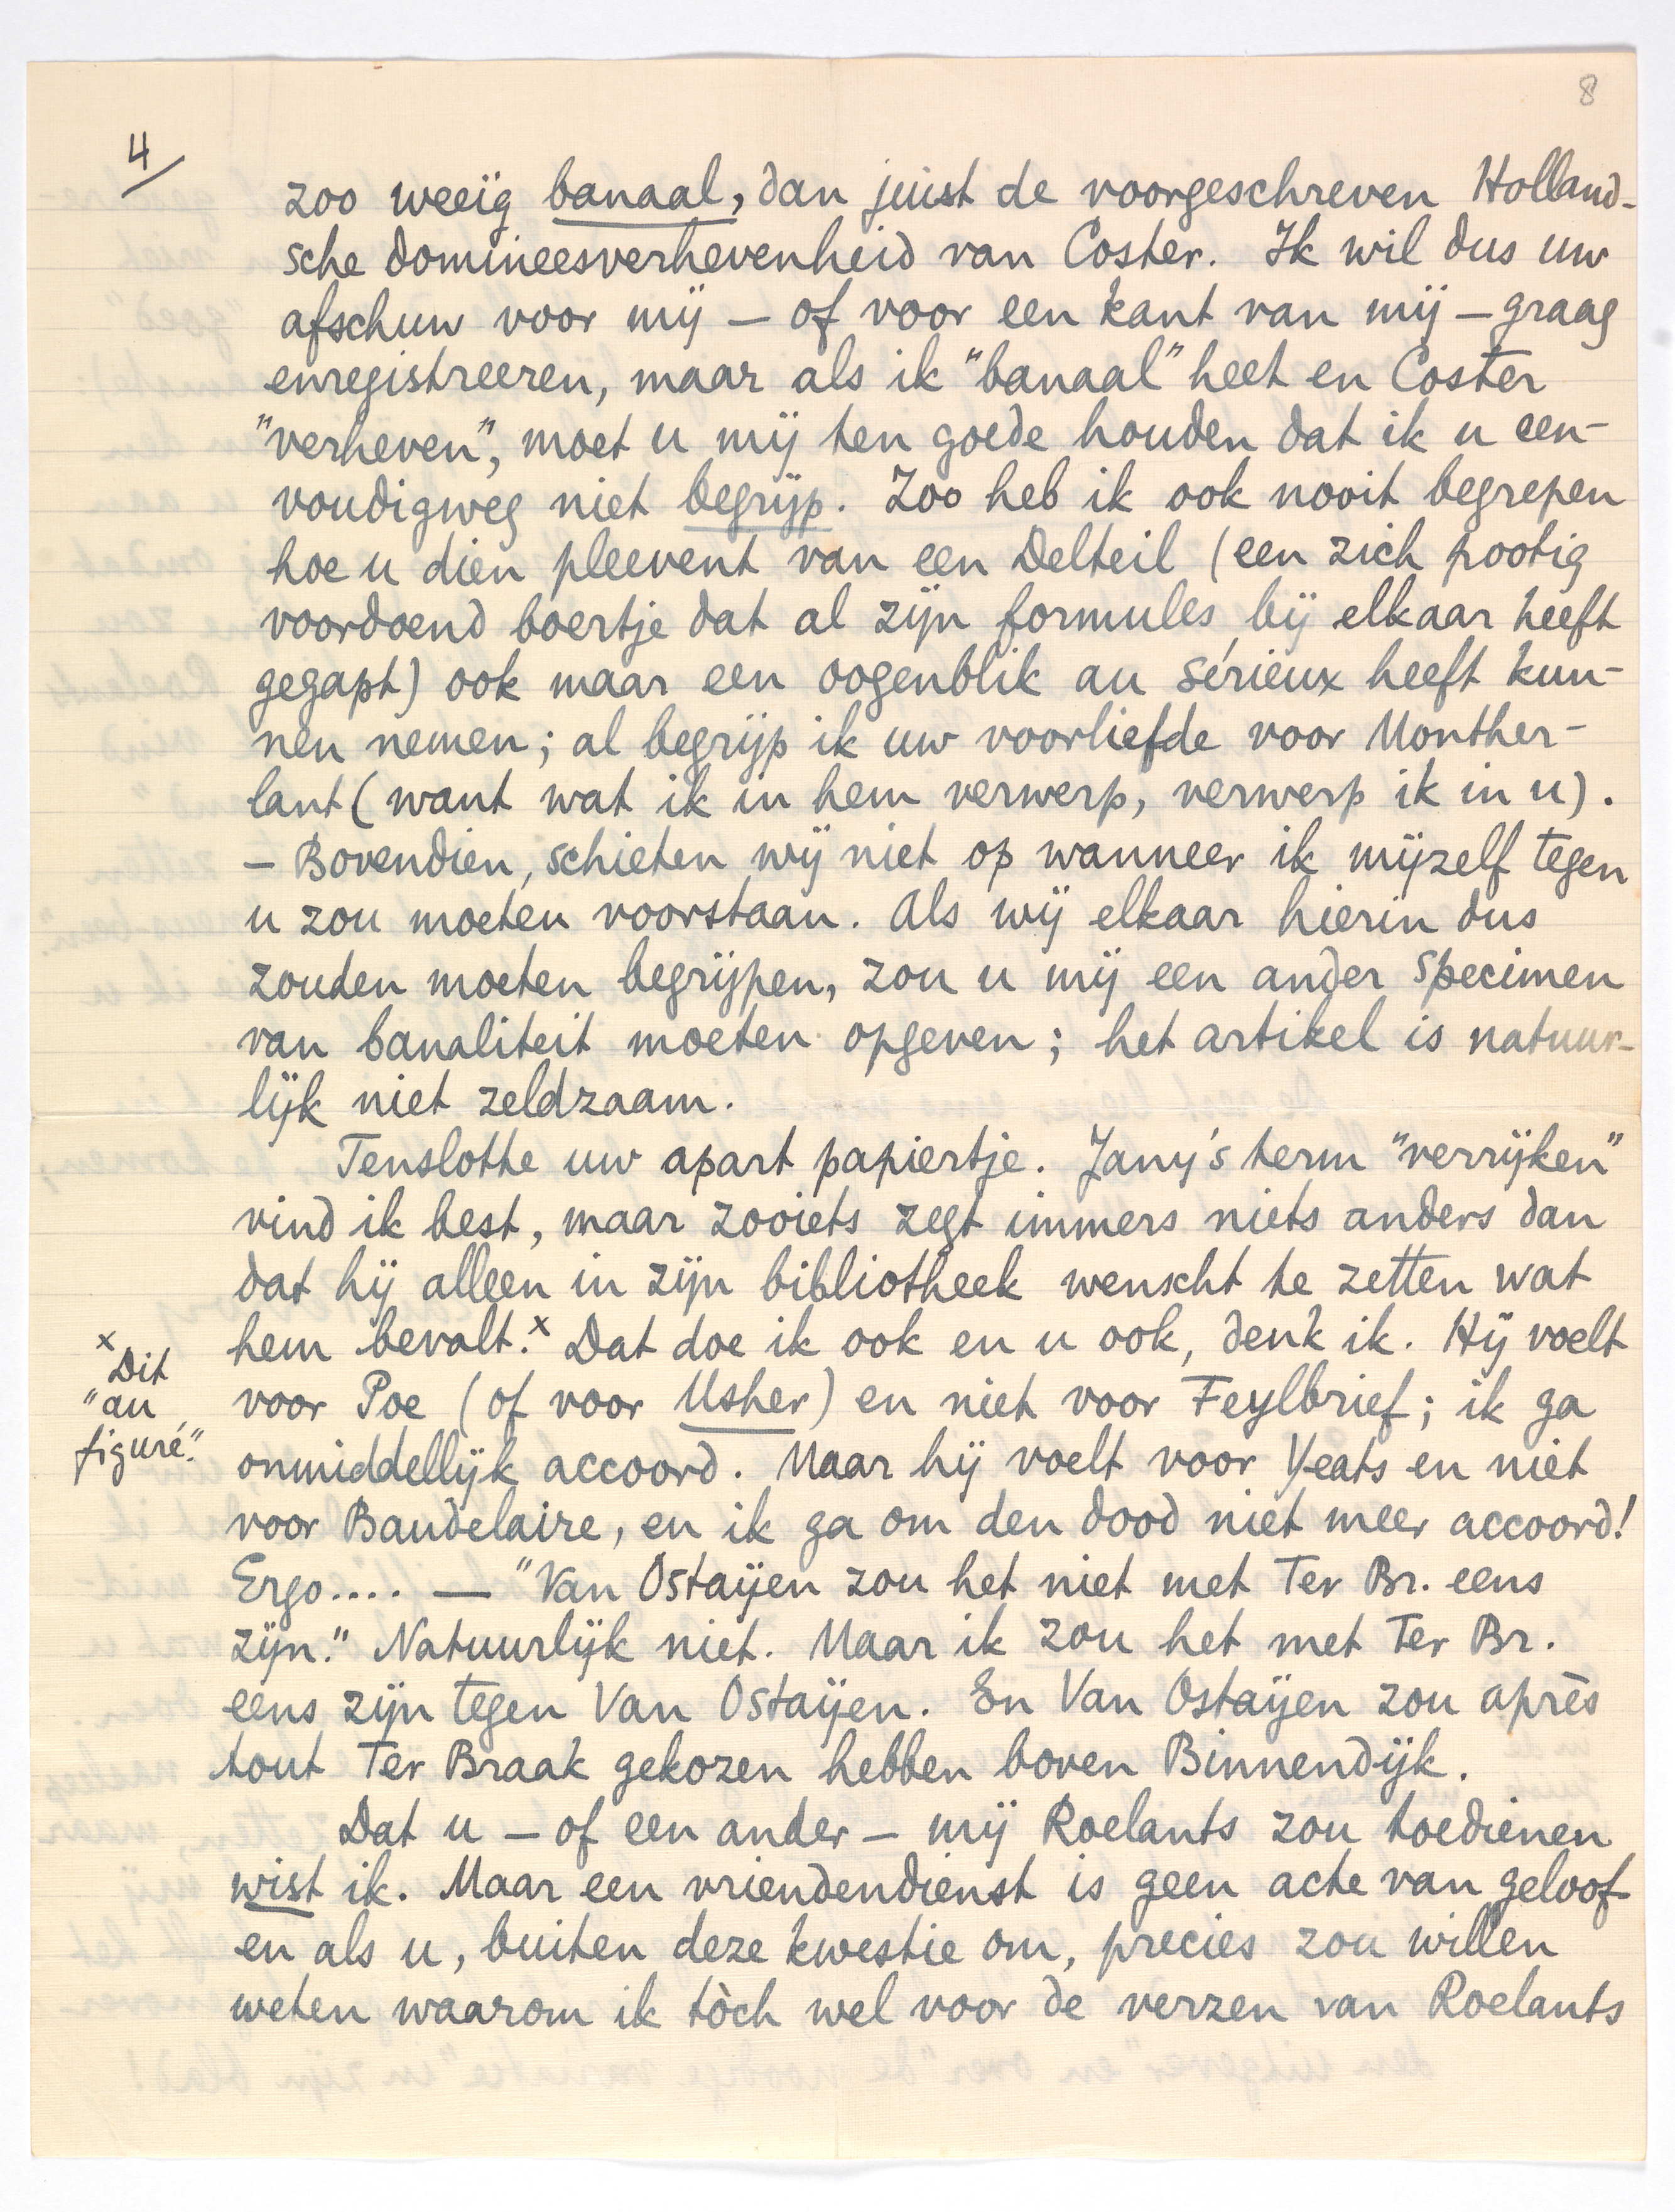 8
4/
zoo weeïg banaal, dan juist de voorgeschreven Holland-
sche domineesverhevenheid van Coster. Ik wil dus uw
afschuw voor mij – of voor een kant van mij – graag
enregistreeren, maar als ik "banaal" heet en Coster
"verheven", moet u mij ten goede houden dat ik u een-
voudigweg niet begrijp. Zoo heb ik ook nooit begrepen
hoe u dien pleevent van een Delteil (een zich pootig
voordoend boertje dat al zijn formules bij elkaar heeft
gegapt) ook maar een oogenblik au sérieux heeft kun-
nen nemen; al begrijp ik uw voorliefde voor Monther-
lant (want wat ik in hem verwerp, verwerp ik in u).
– Bovendien, schieten wij niet op wanneer ik mijzelf tegen
u zou moeten voorstaan. Als wij elkaar hierin dus
zouden moeten begrijpen, zou u mij een ander specimen
van banaliteit moeten opgeven; het artikel is natuur-
lijk niet zeldzaam.
Tenslotte uw apart papiertje. Jany's term "verrijken"
vind ik best, maar zooiets zegt immers niets anders dan
dat hij alleen in zijn bibliotheek wenscht te zetten wat
hem bevalt.x Dat doe ik ook en u ook, denk ik. Hij voelt
x Dit
"au
figuré."
voor Poe (of voor Usher) en niet voor Feylbrief; ik ga
onmiddellijk accoord. Maar hij voelt voor Yeats en niet
voor Baudelaire, en ik ga om den dood niet meer accoord!
Ergo.... — "Van Ostaijen zou het niet met Ter Br. eens
zijn." Natuurlijk niet. Maar ik zou het met Ter Br.
eens zijn tegen Van Ostaijen. En Van Ostaijen zou après
tout Ter Braak gekozen hebben boven Binnendijk.
Dat u – of een ander – mij Roelants zou toedienen
wist ik. Maar een vriendendienst is geen acte van geloof
en als u, buiten deze kwestie om, precies zou willen
weten waarom ik tòch wel voor de verzen van Roelants